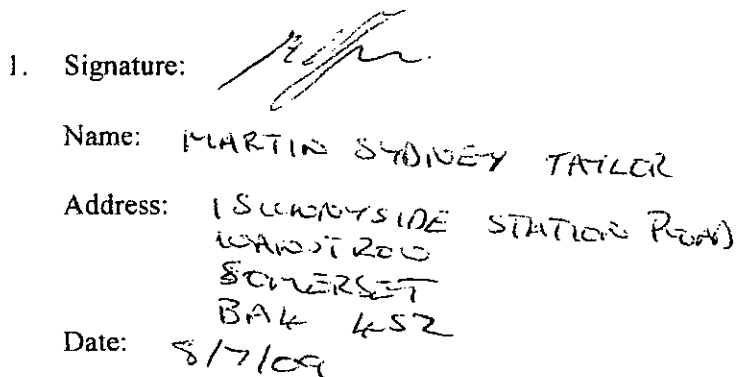 1. Signature:
Name: MARTIN SYDNEY TAYLOR
Address: 1 SUNNYSIDE STATION ROAD
WANSTROW
SOMERSET
BA4 4SZ
Date: 8/7/09